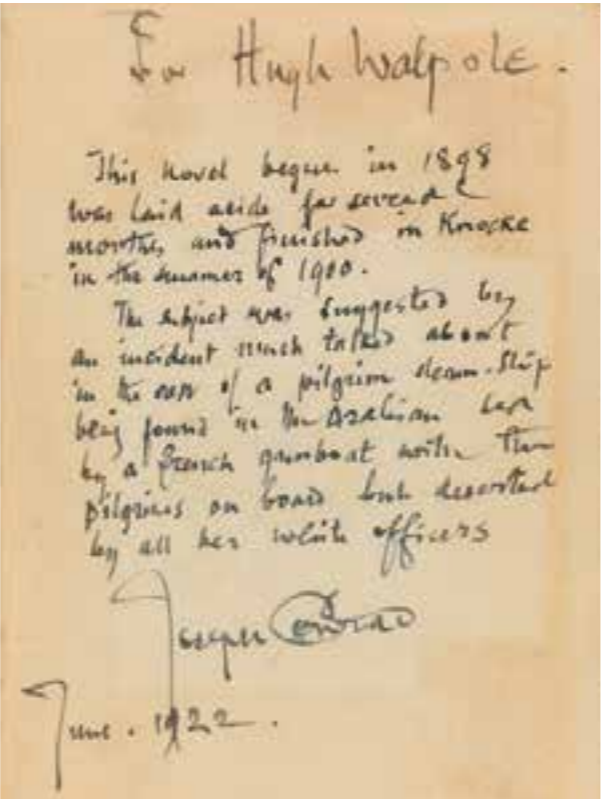 For Hugh Walpole.
This novel begun in 1898
was laid aside for several
months, and finished in Knocke
in the summer of 1900.
The subject was suggested by
an incident much talked about
in the of a pilgrim steam-ship
being found in the Arabian sea
by a french gunboat with the
pilgrims on board but deserted
by all her white officers
Joseph Conrad
June. 1922.